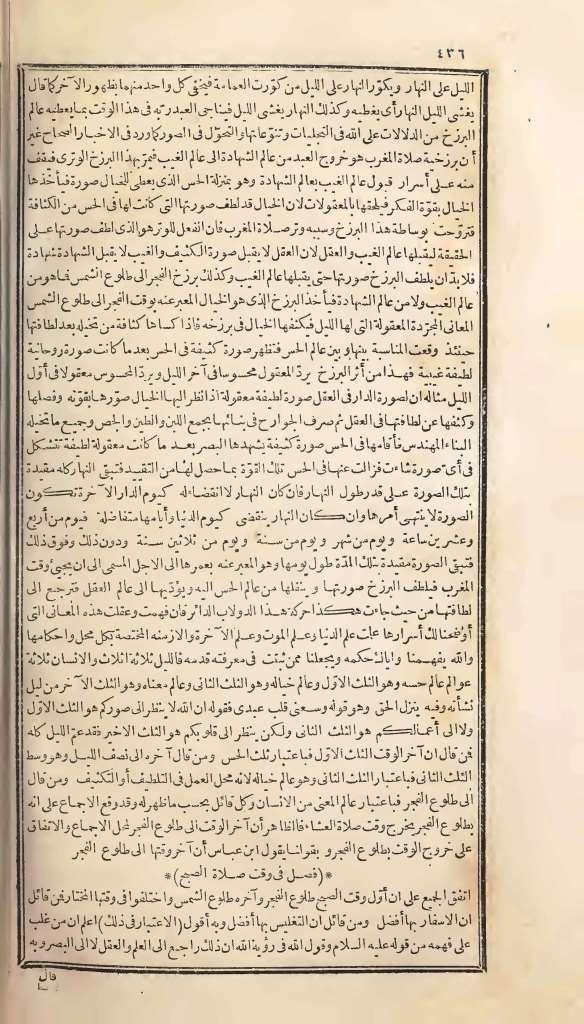 ٤٣٦
الليل على النهار ويكور النهار على الليل من كورت العمامة فيخفى كل واحد منهما بظهور الآخر كما قال
يغشى الليل النهار أى يغطيه وكذلك النهار يغشى الليل فيناجى العبد ربه فى هذا الوقت بما يعطيه عالم
البرزخ من الدلالات على الله فى التجليات وتنوعاتها والتحول فى الصور كما ورد فى الاخبار الصحاح غير
أن برزخية صلاة المغرب هو خروج العبد من عالم الشهادة الى عالم الغيب فيمر بهذا البرزخ الوترى فيقف
منه على أسرار قبول عالم الغيب بعالم الشهادة وهو بمنزلة الحس الذى يعطى للخيال صورة فيأخذها
الخيال بقوة الفكر فيلحقها بالمعقولات لان الخيال قد لطف صورتها التى كانت لها فى الحس من الكثافة
فتروحنت بوساطة هذا البرزخ وسببه وتر صلاة المغرب فان الفعل للوتر هو الذى لطف صورتها على
الحقيقة ليقبلها عالم الغيب والعقل لان العقل لا يقبل صورة الكثيف والغيب لا يقبل الشهادة شهادة
فلا بد أن يلطف البرزخ صورتها حتى يقبلها عالم الغيب وكذلك برزخ الفجر الى طلوع الشمس فما هو من
عالم الغيب ولا من عالم الشهادة فيأخذ البرزخ الذى هو الخيال المعبر عنه بوقت الفجر الى طلوع الشمس
المعانى المجردة المعقولة التى لها الليل فيكثفها الخيال فى برزخه فاذا كساها كثافة من تخيله بعد لطافتها
حينئذ وقعت المناسبة بينها وبين عالم الحس فتظهر صورة كثيفة فى الحس بعد ما كانت صورة روحانية
لطيفة غيبية فهذا من أثر البرزخ يرد المعقول محسوسا فى آخر الليل ويرد المحسوس معقولا فى أول
الليل مثاله ان لصورة الدار فى العقل صورة لطيفة معقولة اذا نظر اليها الخيال صورها بقوته وفصلها
وكثفها عن لطافتها فى العقل ثم صرف الجوارح فى بنائها بجمع اللبن والطين والجص وجميع ما تخيله
البناء المهندس فأقامها فى الحس صورة كثيفة يشهدها البصر بعد ما كانت معقولة لطيفة تتشكل
فى أى صورة شاءت فزالت عنها فى الحس تلك القوة بما حصل لها من التقييد فتبقى النهار كله مقيدة
بتلك الصورة على قدر طول النهار فان كان النهار لا انقضاء له كيوم الدار الآخرة تكون
الصورة لا ينتهى أمرها وان كان النهار ينقضى كيوم الدنيا وأيامها متفاضلة فيوم من أربع
وعشرين ساعة ويوم من شهر ويوم من سنة ويوم من ثلاثين سنة ودون ذلك وفوق ذلك
فتبقى الصورة مقيدة بتلك المدة طول يومها وهو المعبر عنه بعمرها الى الاجل المسمى الى أن يجىء وقت
المغرب فيلطف البرزخ صورتها وينقلها من عالم الحس اليه ويؤديها الى عالم العقل فترجع الى
لطافتها من حيث جاءت هكذا حركة هذا الدولاب الدائر فان فهمت وعقلت هذه المعانى التى
أوضحنا لك أسرارها علمت علم الدنيا وعلم الموت وعلم الآخرة والازمنة المختصة بكل محل واحكامها
والله يفهمنا واياك حكمه ويجعلنا ممن ثبتت فى معرفته قدمه فالليل ثلاثة اثلاث والانسان ثلاثة
عوالم عالم حسه وهو الثلث الاول وعالم خياله وهو الثلث الثانى وعالم معناه وهو الثلث الآخر من ليل
نشأته وفيه ينزل الحق وهو قوله وسعنى قلب عبدى فقوله ان الله لا ينظر الى صوركم هو الثلث الاول
ولا الى أعمالكم هو الثلث الثانى ولكن ينظر الى قلوبكم هو الثلث الاخير فقد عم الليل كله
فمن قال ان آخر الوقت الثلث الاول فباعتبار ثلث الحس ومن قال آخره الى نصف الليل وهو وسط
الثلث الثانى فباعتبار الثلث الثانى وهو عالم خياله لانه محل العمل فى التلطيف أو التكثيف ومن قال
الى طلوع الفجر فباعتبار عالم المعنى من الانسان وكل قائل بحسب ما ظهر له وقد وقع الاجماع على انه
بطلوع الفجر يخرج وقت صلاة العشاء فالظاهر أن آخر الوقت الى طلوع الفجر لمحل الاجماع والاتفاق
على خروج الوقت بطلوع الفجر و بقولنا يقول ابن عباس أن آخر وقتها الى طلوع الفجر
*(فصل فى وقت صلاة الصبح)*
اتفق الجميع على ان أول وقت الصبح طلوع الفجر وآخره طلوع الشمس واختلفوا فى وقتها المختار فمن قائل
ان الاسفار بها أفضل ومن قائل ان التغليس بها أفضل وبه أقول (الاعتبار فى ذلك) اعلم ان من غلب
على فهمه من قوله عليه السلام وقول الله فى رؤية الله ان ذلك راجع الى العلم والعقل لا الى البصر وبه
قال